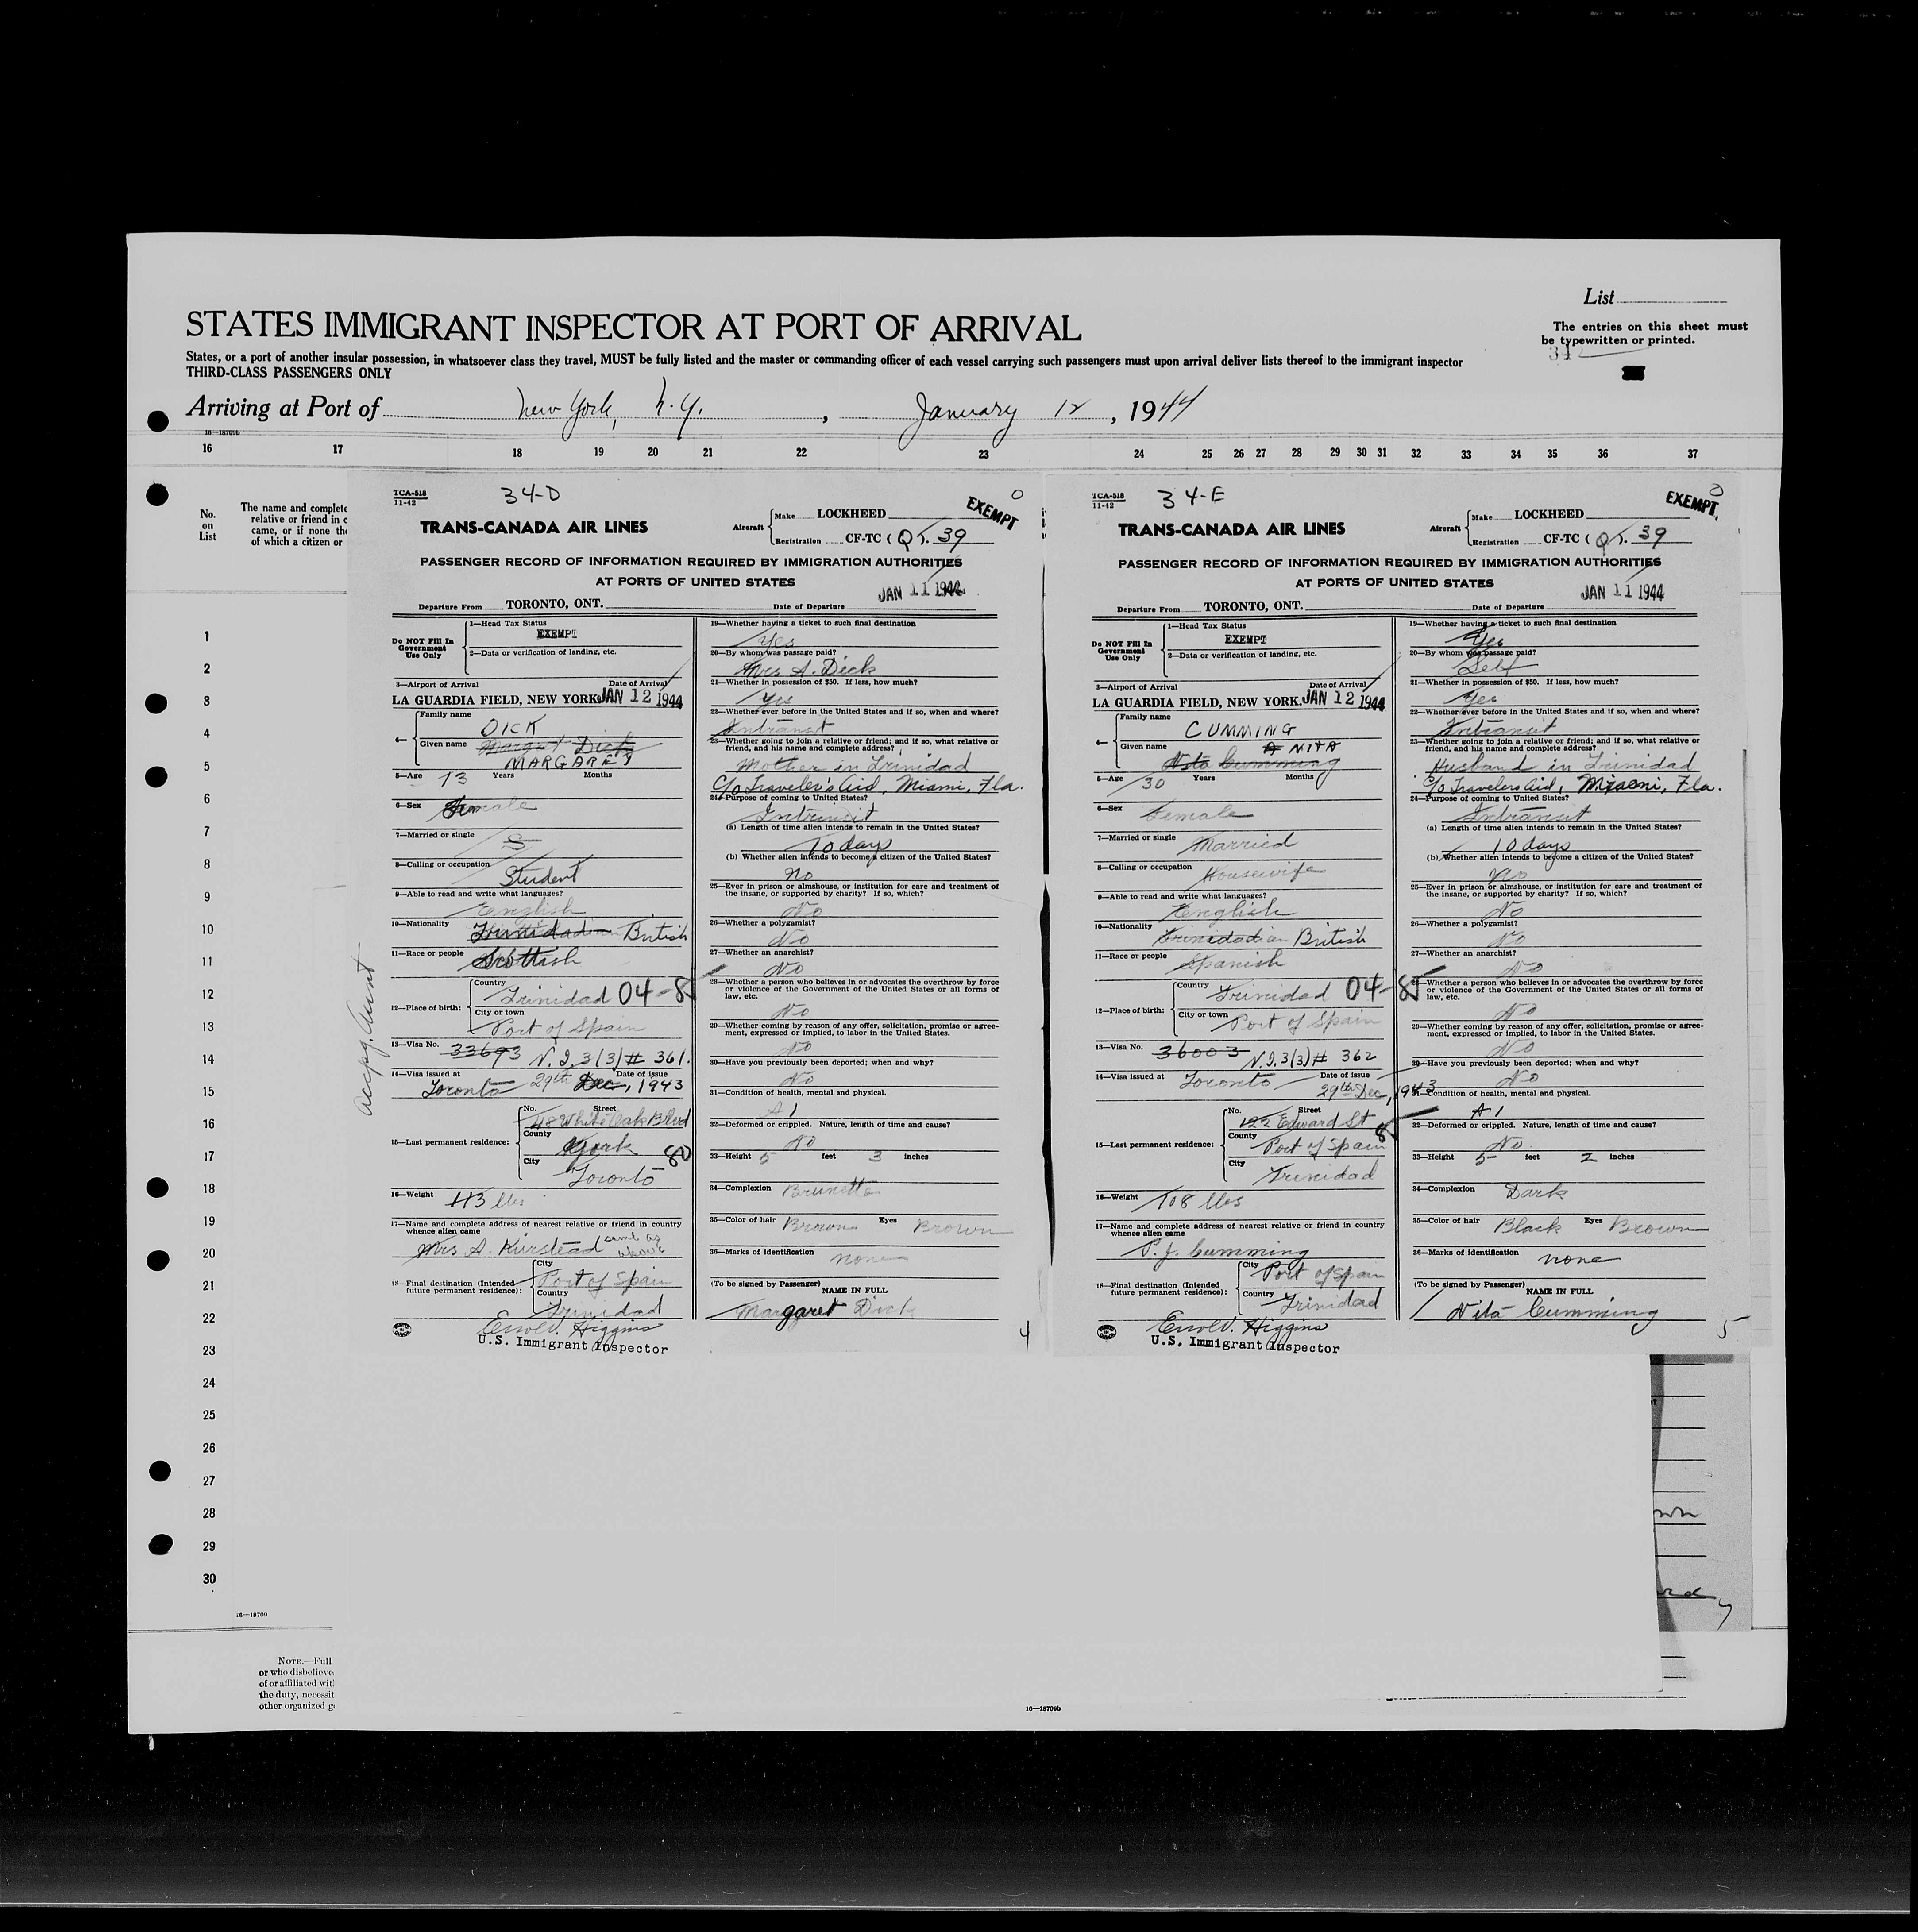 List
STATES IMMIGRANT INSPECTOR AT PORT OF ARRIVAL
The entries on this sheet must
be typewritten or printed.
34
States, or a port of another insular possession, in whatsoever class they travel, MUST be fully listed and the master or commanding officer of each vessel carrying such passengers must upon arrival deliver lists thereof to the immigrant inspector
THIRD-CLASS PASSENGERS ONLY
Arriving at Port of New York, N.Y., January 12, 1944
16—18709b
16 17 18 19 20 21 22 23 24 25 26 27 28 29 30 31 32 33 34 35 36 37
No.
on
List
The name and complete
relative or friend in c
came, or if none the
of which a citizen or
1
2
3
4
5
6
7
8
9
10
11
12
13
14
15
16
17
18
19
20
21
22
23
24
25
26
27
28
29
30
Accpg. Aunt
TCA-518
11-42
34-D
0
EXEMPT
TRANS-CANADA AIR LINES
Aircraft Make LOCKHEED
Registration CF-TC (QT. 39
PASSENGER RECORD OF INFORMATION REQUIRED BY IMMIGRATION AUTHORITIES
AT PORTS OF UNITED STATES
JAN 11 1944
Departure From TORONTO, ONT. Date of Departure
Do NOT Fill In
Government
Use Only
1—Head Tax Status
EXEMPT
2—Data or verification of landing, etc.
3—Airport of Arrival Date of Arrival
LA GUARDIA FIELD, NEW YORK. JAN 12 1944
4— Family name
DICK
Given name Margt Dick
MARGARET
5—Age 13 Years Months
6—Sex Female
7—Married or single S
8—Calling or occupation
Student
9—Able to read and write what languages?
English
10—Nationality Trinidadian British
11—Race or people Scottish
12—Place of birth: Country
Trinidad 04-8
City or town
Port of Spain
13—Visa No. 33693 N.I. 3(3) # 361.
14—Visa issued at Date of issue
Toronto 29th Dec, 1943
15—Last permanent residence: No. Street
48 White Oak Blvd
County
York 80
City
Toronto
16—Weight 113 lbs
17—Name and complete address of nearest relative or friend in country
whence alien came
Mrs A. Kirstead same as above
18—Final destination (Intended
future permanent residence): City
Port of Spain
Country
Trinidad
Errol V. Higgins
U.S. Immigrant Inspector
19—Whether having a ticket to such final destination
Yes
20—By whom was passage paid?
Mrs A. Dick
21—Whether in possession of $50. If less, how much?
Yes
22—Whether ever before in the United States and if so, when and where?
Intransit
23—Whether going to join a relative or friend; and if so, what relative or
friend, and his name and complete address?
Mother in Trinidad
C/o Traveler's Aid, Miami, Fla.
24—Purpose of coming to United States?
Intransit
(a) Length of time alien intends to remain in the United States?
10 days
(b) Whether alien intends to become a citizen of the United States?
No
25—Ever in prison or almshouse, or institution for care and treatment of
the insane, or supported by charity? If so, which?
No
26—Whether a polygamist?
No
27—Whether an anarchist?
No
28—Whether a person who believes in or advocates the overthrow by force
or violence of the Government of the United States or all forms of
law, etc.
No
29—Whether coming by reason of any offer, solicitation, promise or agree-
ment, expressed or implied, to labor in the United States.
No
30—Have you previously been deported; when and why?
No
31—Condition of health, mental and physical.
A1
32—Deformed or crippled. Nature, length of time and cause?
No
33—Height 5 feet 3 inches
34—Complexion Brunette
35—Color of hair Brown Eyes Brown
36—Marks of identification
none
(To be signed by Passenger)
NAME IN FULL
Margaret Dick
4
TCA-518
11-42
34-E
0
EXEMPT
TRANS-CANADA AIR LINES
Aircraft Make LOCKHEED
Registration CF-TC (QT. 39
PASSENGER RECORD OF INFORMATION REQUIRED BY IMMIGRATION AUTHORITIES
AT PORTS OF UNITED STATES
JAN 11 1944
Departure From TORONTO, ONT. Date of Departure
Do NOT Fill In
Government
Use Only
1—Head Tax Status
EXEMPT
2—Data or verification of landing, etc.
3—Airport of Arrival Date of Arrival
LA GUARDIA FIELD, NEW YORK. JAN 12 1944
4— Family name
CUMMING
Given name NITA
Nita Cumming
5—Age 30 Years Months
6—Sex Female
7—Married or single Married
8—Calling or occupation Housewife
9—Able to read and write what languages?
English
10—Nationality Trinidadian British
11—Race or people Spanish
12—Place of birth: Country
Trinidad 04-85
City or town
Port of Spain
13—Visa No. 36003 N.I. 3(3) # 362
14—Visa issued at Date of issue
Toronto 29th Dec, 1943
15—Last permanent residence: No. Street
122 Edward St
County
Port of Spain
City
Trinidad
16—Weight 108 lbs
17—Name and complete address of nearest relative or friend in country
whence alien came
P. J. Cumming
18—Final destination (Intended
future permanent residence): City
Port of Spain
Country
Trinidad
Errol V. Higgins
U.S. Immigrant Inspector
19—Whether having a ticket to such final destination
Yes
20—By whom was passage paid?
Self
21—Whether in possession of $50. If less, how much?
Yes
22—Whether ever before in the United States and if so, when and where?
Intransit
23—Whether going to join a relative or friend; and if so, what relative or
friend, and his name and complete address?
Husband in Trinidad
C/o Travelers Aid, Miami, Fla.
24—Purpose of coming to United States?
Intransit
(a) Length of time alien intends to remain in the United States?
10 days
(b) Whether alien intends to become a citizen of the United States?
No
25—Ever in prison or almshouse, or institution for care and treatment of
the insane, or supported by charity? If so, which?
No
26—Whether a polygamist?
No
27—Whether an anarchist?
No
28—Whether a person who believes in or advocates the overthrow by force
or violence of the Government of the United States or all forms of
law, etc.
No
29—Whether coming by reason of any offer, solicitation, promise or agree-
ment, expressed or implied, to labor in the United States.
No
30—Have you previously been deported; when and why?
No
31—Condition of health, mental and physical.
A1
32—Deformed or crippled. Nature, length of time and cause?
No
33—Height 5 feet 2 inches
34—Complexion Dark
35—Color of hair Black Eyes Brown
36—Marks of identification
none
(To be signed by Passenger)
NAME IN FULL
Nita Cumming
5
16—18709
NOTE.—Full
or who disbelieve
of or affiliated wit
the duty, necessit
other organized g
16—18709b